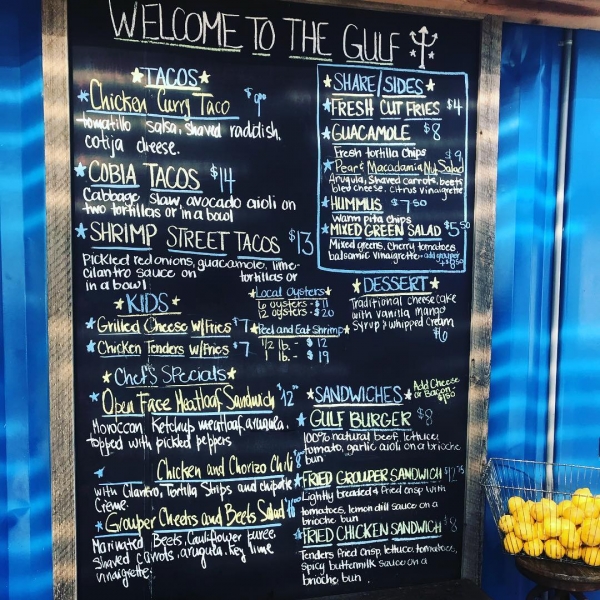 WELCOME TO THE GULF
TACOS
Chicken Curry Taco
tomatillo salsa, shaved raddish,
cotija cheese.
COBIA TACOS $14
Cabbage slaw, avocado aioli on
two tortillas or in a bowl
SHRIMP STREET TACOS $13
Pickled red onions, guacamole, lime-
cilantro sauce on tortillas or
in a bowl
KIDS
Grilled Cheese w/Fries $7
Chicken Tenders w/Fries $7
Local Oysters
6 oysters - $11
12 oysters - $20
Peel and Eat Shrimp
1/2 lb. - $12
1 lb. - $19
Chef's Specials
Open Face Meatloaf Sandwich $12
Moroccan Ketchup meatloaf, arugula,
topped with pickled peppers
Chicken and Chorizo Chili $8
with Cilantro, Tortilla Strips and chipotle
Creme.
Grouper Cheeks and Beets Salad
Marinated Beets, Cauliflower puree,
shaved carrots, arugula, Key lime
vinaigrette.
SHARE/SIDES
FRESH CUT FRIES $4
GUACAMOLE $8
Fresh tortilla chips
Pear & Macadamia Nut Salad $9
Arugula, Shaved carrots, beets
bleu cheese, citrus vinaigrette
HUMMUS $7.50
Warm pita chips
MIXED GREEN SALAD $5.50
Mixed greens, Cherry tomatoes
balsamic vinaigrette - add grouper
DESSERT
Traditional cheesecake
with vanilla mango
Syrup & whipped cream
$6
SANDWICHES
Add Cheese
or Bacon-
$1.50
GULF BURGER $8
100% natural beef, lettuce,
tomato, garlic aioli on a brioche
bun
FRIED GROUPER SANDWICH $12.75
Lightly breaded & fried crisp with
tomatoes, lemon dill sauce on a
brioche bun
FRIED CHICKEN SANDWICH $8
Tenders fried crisp, lettuce, tomatoes,
spicy buttermilk sauce on a
brioche bun.